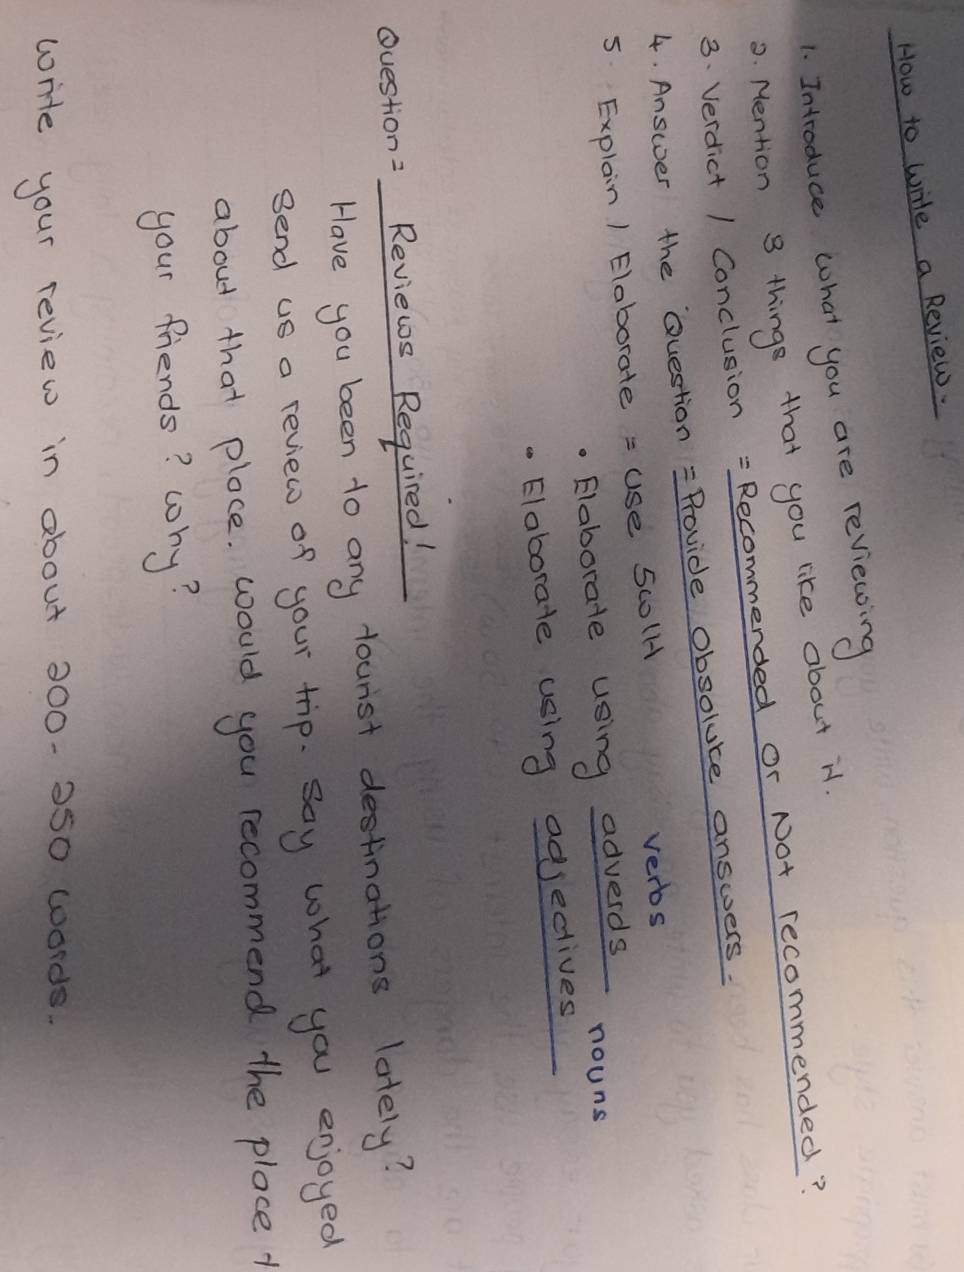 How to write a Review:
1. Introduce what you are reviewing
2. Mention 3 things that you like about it.
3. Verdict / Conclusion = Recommended or Not recommended?
4. Answer the Question = Provide absolute answers.
5. Explain / Elaborate = use 5W1H
verbs
• Elaborate using adverds
nouns
• Elaborate using adjectives
Question = Reviews Required!
Have you been to any tourist destinations lately?
Send us a review of your trip. Say what you enjoyed
about that place. would you recommend the place t
your friends? why?
write your review in about 200-250 words.